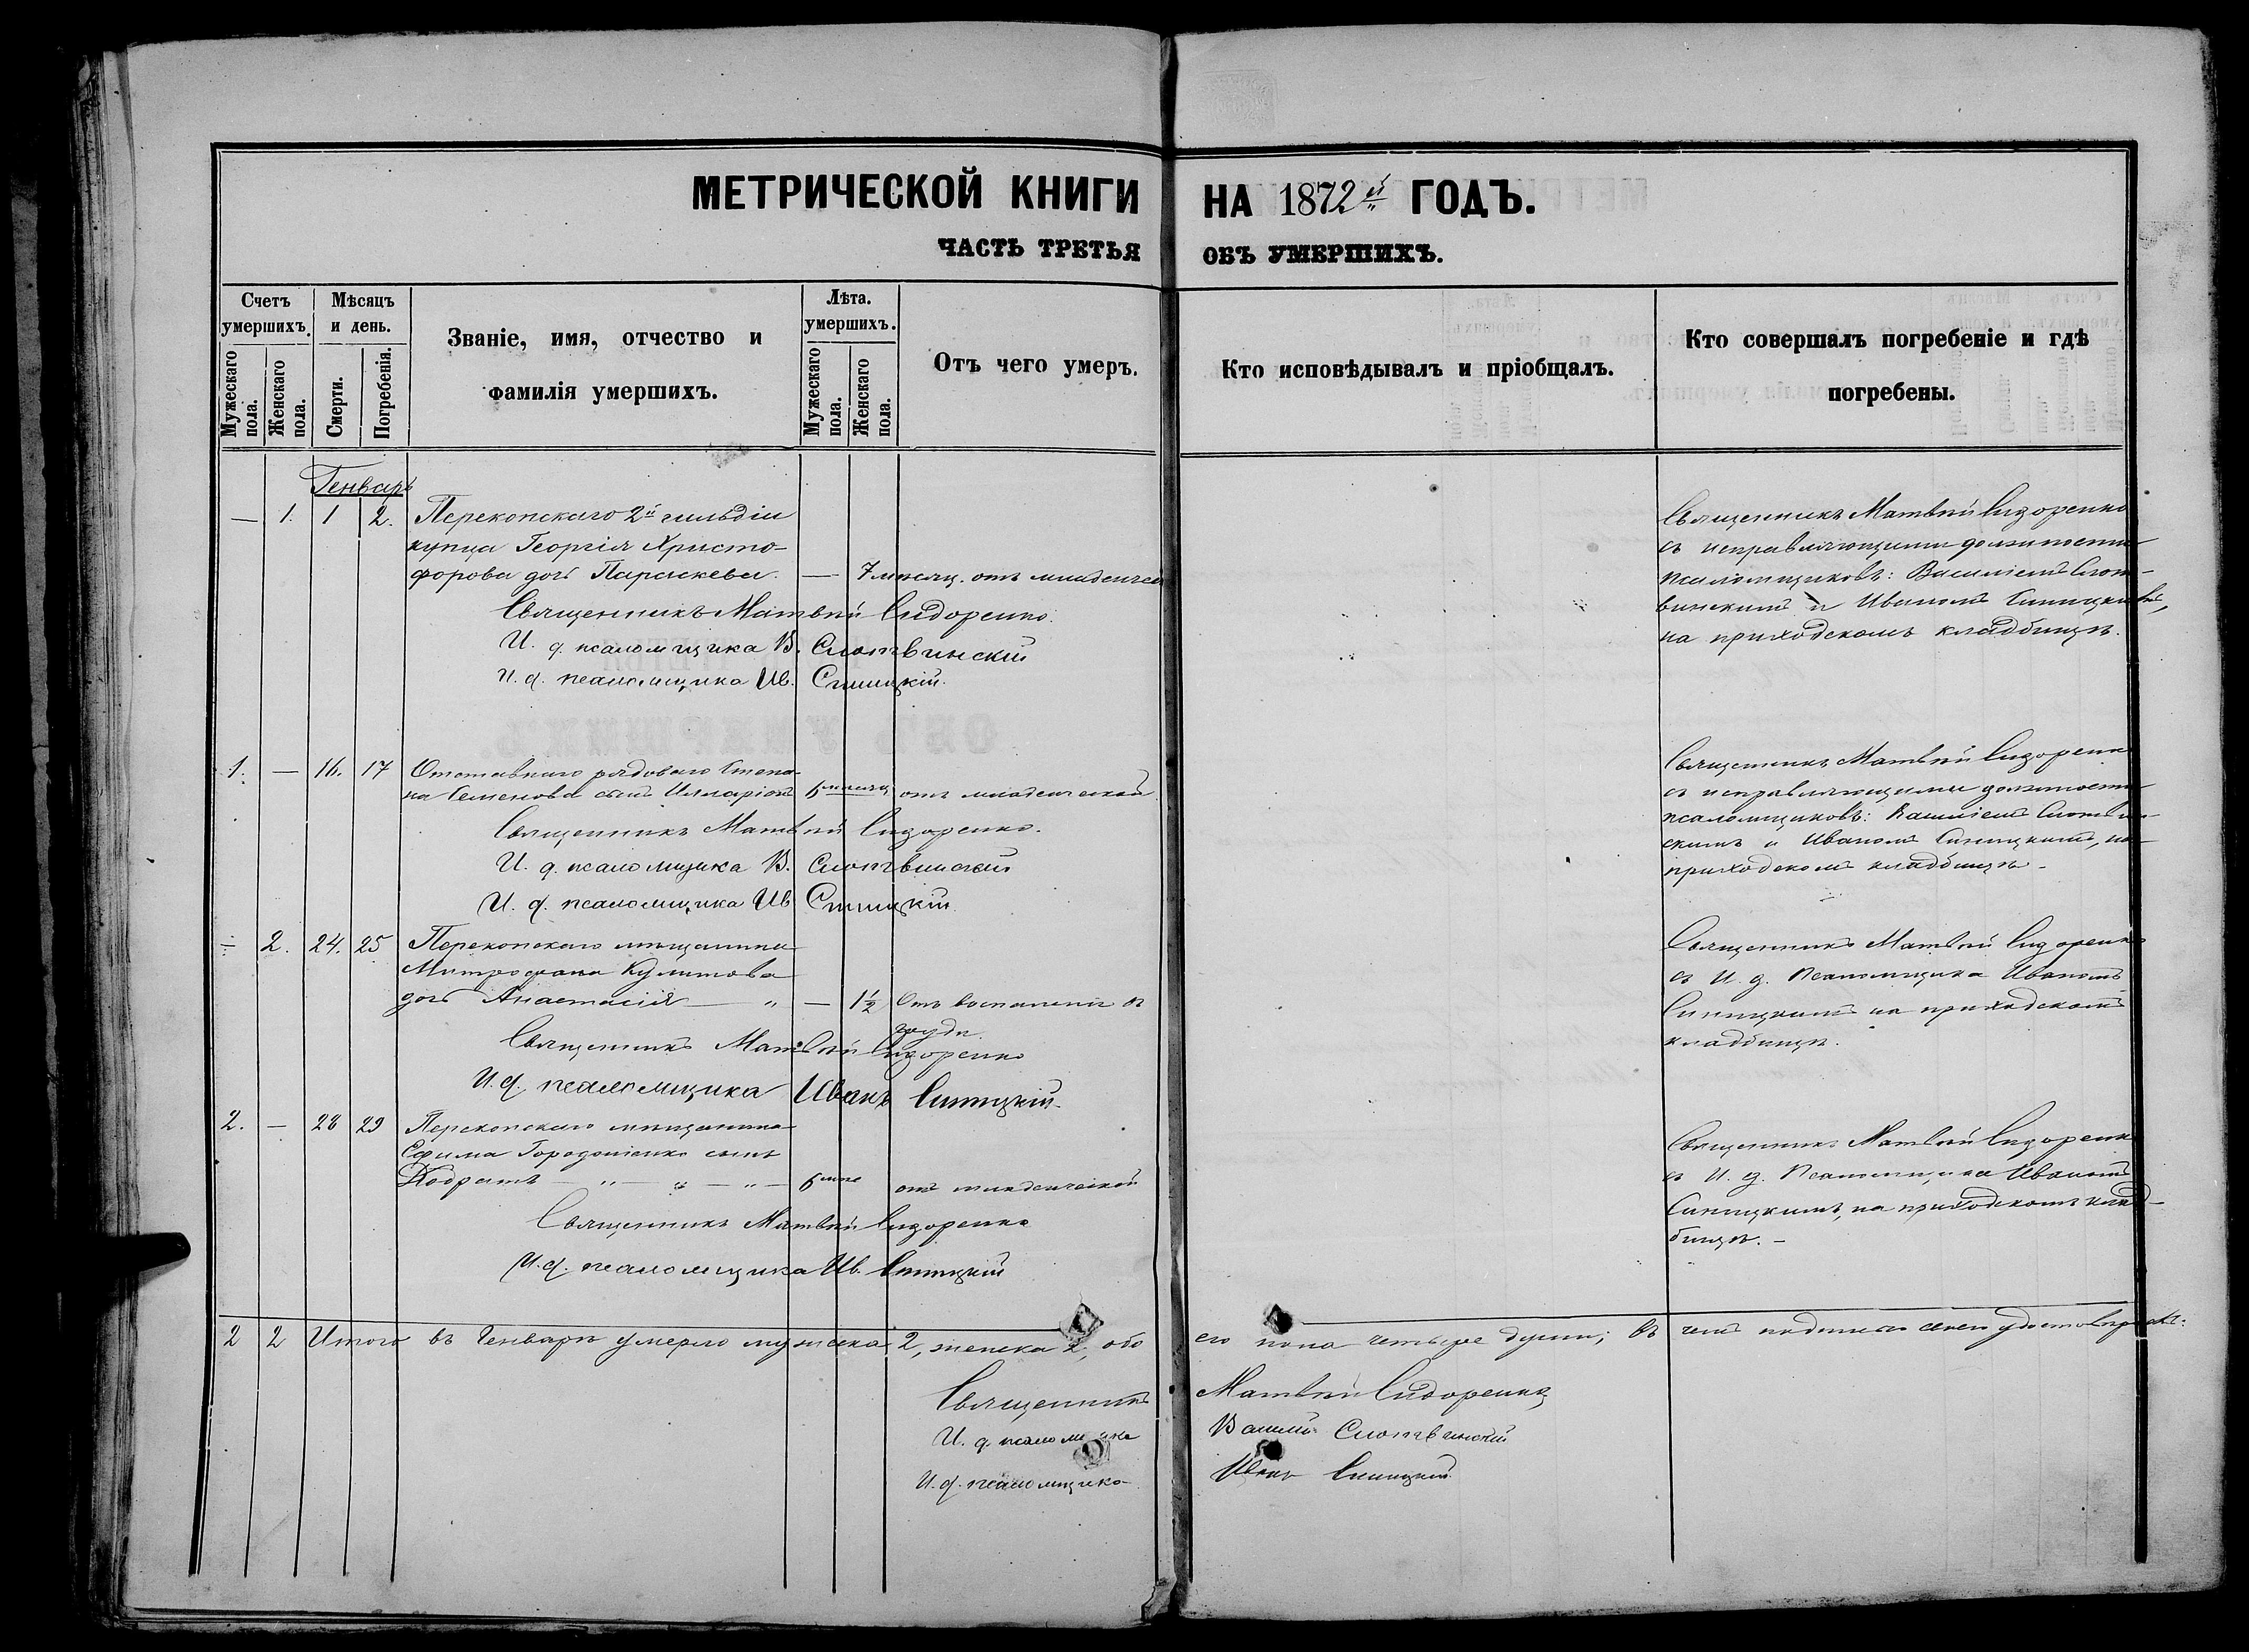 МЕТРИЧЕСКОЙ КНИГИ НА 1872й ГОДЪ.
ЧАСТЬ ТРЕТЬЯ ОБЪ УМЕРШИХЪ.
Счетъ умершихъ.
Мужескаго пола.
Женскаго пола.
Мѣсяцъ и день.
Смерти.
Погребенія.
Званіе, имя, отчество и
фамилія умершихъ.
Лѣта умершихъ.
Мужескаго пола.
Женскаго пола.
Отъ чего умеръ.
Кто исповѣдывалъ и пріобщалъ.
Кто совершалъ погребеніе и гдѣ
погребены.
Генварь
— 1. 1 2. Перекопскаго 2й гильдіи
купца Георгія Христо-
форова дочь Параскева. — 7 мѣсяц. отъ младенческ
Священникъ Матвѣй Сидоренко.
И. д. псаломщика В. Слотвинскій
И. д. псаломщика Ив. Синицкій.
Священникъ Матвѣй Сидоренко
съ исправляющими должность
псаломщиковъ: Василіемъ Слот-
винскимъ и Иваномъ Синицкимъ,
на приходскомъ кладбищѣ.
1. — 16. 17 Отставнаго рядоваго Степа-
на Семенова сынъ Илларіонъ 6 мѣсяц отъ младенческой
Священникъ Матвѣй Сидоренко.
И. д. псаломщика В. Слотвинскій
И. д. псаломщика Ив Синицкій
Священникъ Матвѣй Сидоренк
съ исправляющими должность
псаломщиковъ: Василіемъ Слотвин-
скимъ и Иваномъ Синицкимъ, на
приходскомъ кладбищѣ.
— 2. 24. 25 Перекопскаго мѣщанина
Митрофана Кулитова
дочь Анастасія — " — 1½ Отъ воспаленія въ
груди.
Священникъ Матвѣй Сидоренко
И. д. псаломщика Иванъ Синицкій
Священникъ Матвѣй Сидоренко
съ И. д. Псаломщика Иваномъ
Синицкимъ на приходскомъ
кладбищѣ.
2. — 28 29 Перекопскаго мѣщанина
Ефима сынъ
Кодратъ — " — " — " — 6 отъ младенческой
Священникъ Матвѣй Сидоренко
И. д. псаломщика Ив. Синицкій
Священникъ Матвѣй Сидоренк
съ И. д. Псаломщика Иваномъ
Синицкимъ, на приходскомъ клад-
бищѣ. —
2 2 Итого въ Генварѣ умерло мужеска 2, женска 2, обо его пола четыре души; въ чемъ подписью своею удостовѣряемъ:
Священникъ Матвѣй Сидоренко
И. д. псаломщика Василій Слотвинскій
И. д. псаломщика Иванъ Синицкій